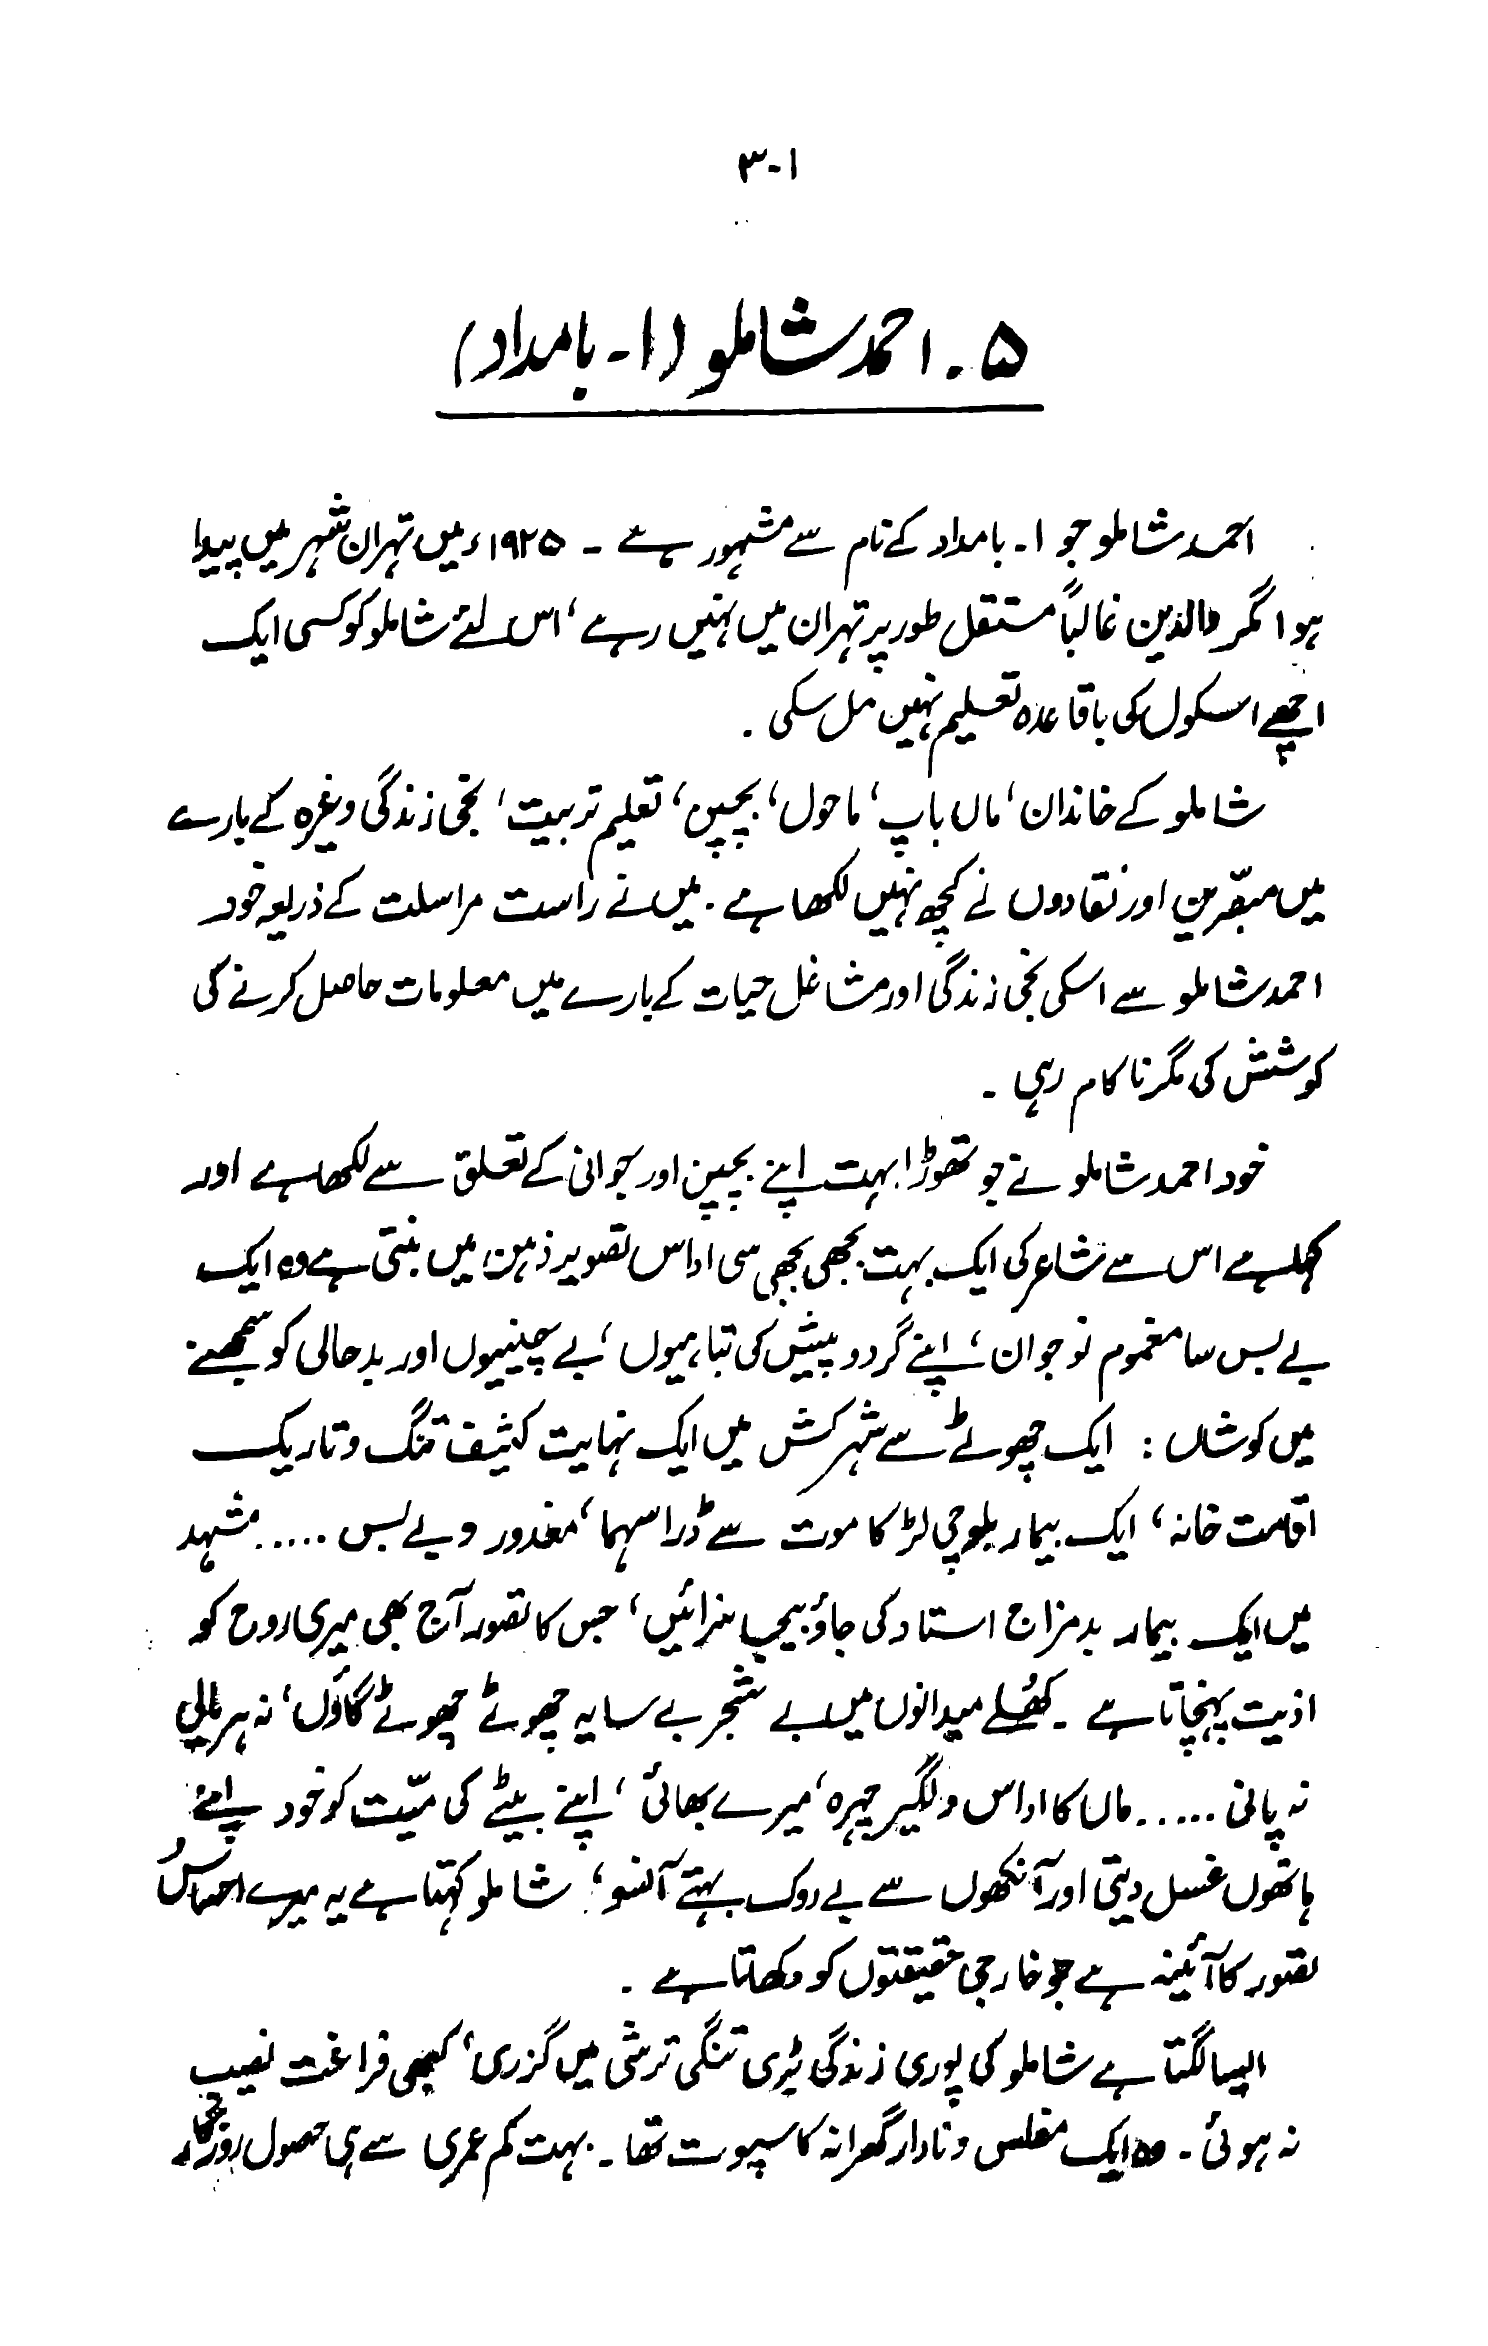 ۳۰۱
۵۔ احمد شاملو (ا۔ بامداد)
احمد شاملو جو ا۔ بامداد کے نام سے مشہور ہے ۔ ۱۹۲۵ء میں تہران شہر میں پیدا
ہوا مگر والدین غالباً مستقل طور پر تہران میں نہیں رہے ‘ اس لئے شاملو کو کسی ایک
اچھے اسکول کی باقاعدہ تعلیم نہیں مل سکی ۔
شاملو کے خاندان ‘ ماں باپ ‘ ماحول ‘ بچپن ‘ تعلیم تربیت ‘ نجی زندگی وغیرہ کے بارے
میں مبصّرین اور نقادوں نے کچھ نہیں لکھا ہے ۔ میں نے راست مراسلت کے ذریعہ خود
احمد شاملو سے اسکی نجی زندگی اور مشاغل حیات کے بارے میں معلومات حاصل کرنے کی
کوشش کی مگر ناکام رہی ۔
خود احمد شاملو نے جو تھوڑا بہت اپنے بچپن اور جوانی کے تعلق سے لکھا ہے اور
کہا ہے اس سے شاعر کی ایک بہت بجھی بجھی سی اداس تصویر ذہن میں بنتی ہے وہ ایک
بے بس سا مغموم نوجوان ‘ اپنے گرد و پیش کی تباہیوں ‘ بے چینیوں اور بدحالی کو سمجھنے
میں کوشاں : ایک چھوٹے سے شہر کش میں ایک نہایت کثیف تنگ و تاریک
اقامت خانہ ‘ ایک بیمار بلوچی لڑکا موت سے ڈرا سہما ‘ معذور و بے بس ..... مشہد
میں ایک بیمار بدمزاج استاد کی جاؤ بیجا سزائیں ‘ جس کا تصور آج بھی میری روح کو
اذیت پہنچاتا ہے ۔ کھُلے میدانوں میں بے شجر بے سایہ چھوٹے چھوٹے گاؤں ‘ نہ ہریالی
نہ پانی ..... ماں کا اداس و دلگیر چہرہ ‘ میرے بھائی ‘ اپنے بیٹے کی میّت کو خود اپنے
ہاتھوں غسل دیتی اور آنکھوں سے بے روک بہتے آنسو ‘ شاملو کہتا ہے یہ میرے احساسُ
تصور کا آئینہ ہے جو خارجی حقیقتوں کو دکھاتا ہے ۔
ایسا لگتا ہے شاملو کی پوری زندگی بڑی تنگی ترشی میں گزری ‘ کبھی فراغت نصیب
نہ ہوئی ۔ وہ ایک مفلس و نادار گھرانہ کا سپوت تھا ۔ بہت کم عمری سے ہی حصول روزگار